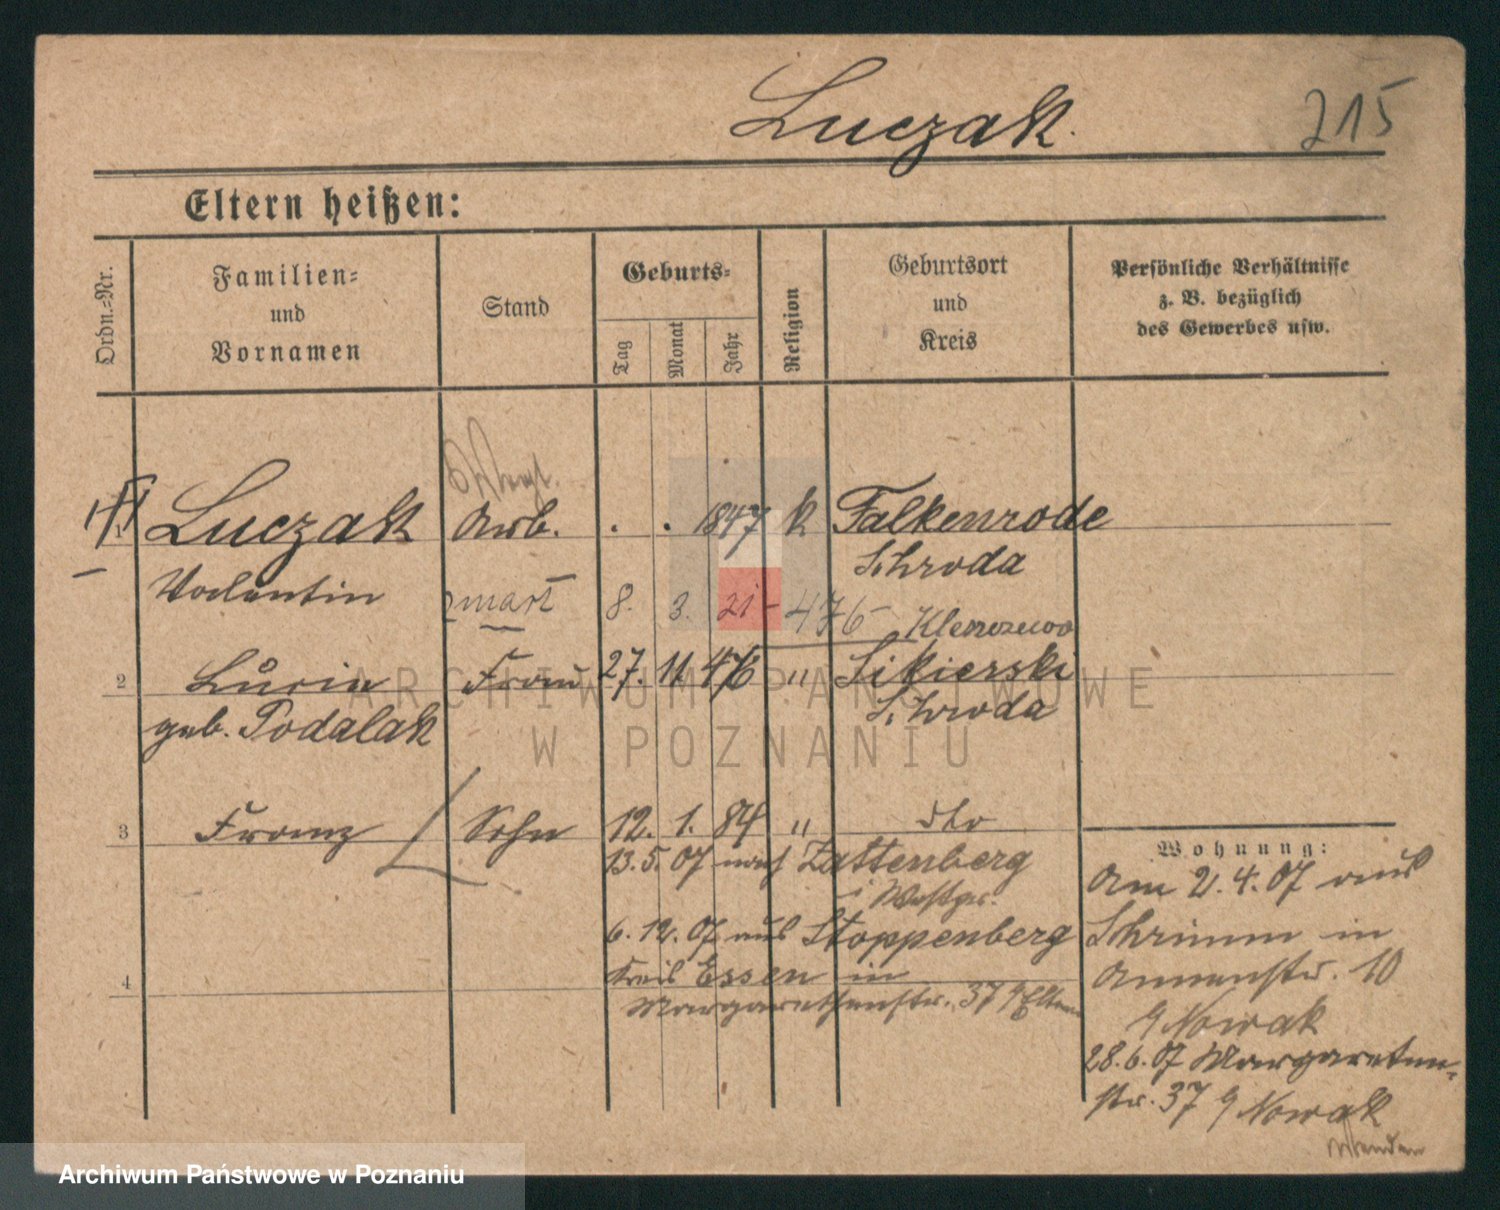 Luczak. 215
Eltern heißen:
Ordn.-Nr.
Familien-
und
Vornamen
Stand
Geburts-
Tag
Monat
Jahr
Religion
Geburtsort
und
Kreis
Persönliche Verhältnisse
z. B. bezüglich
des Gewerbes usw.
1 Luczak Arb. . . 1847 k Falkenrode
Schroda
Valentin
8. 3. 21 - 476
2 Lucia Frau 27. 11. 46 " Sikierski
geb. Podalak Schroda
3 Franz Sohn 12. 1. 84 " dto
13. 5. 07 nach Zattenberg
i Westpr.
6. 12. 07 aus Stoppenberg
4 Kreis Essen in
Margarethenstr. 37 b/ Eltern
Wohnung:
Am 2. 4. 07 aus
Schrimm in
Annenstr. 10
b/ Nowak
28. 6. 07 Margareten-
str. 37 b/ Nowak
wenden
ARCHIWUM PAŃSTWOWE
W POZNANIU
Archiwum Państwowe w Poznaniu